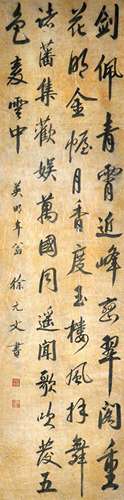 劍佩青霄近峰巒翠閣重
花明金幄月香度玉樓風拜舞
諸藩集歡娛萬國同遥聞歌吹發五
色慶雲中
年翁 徐元文書